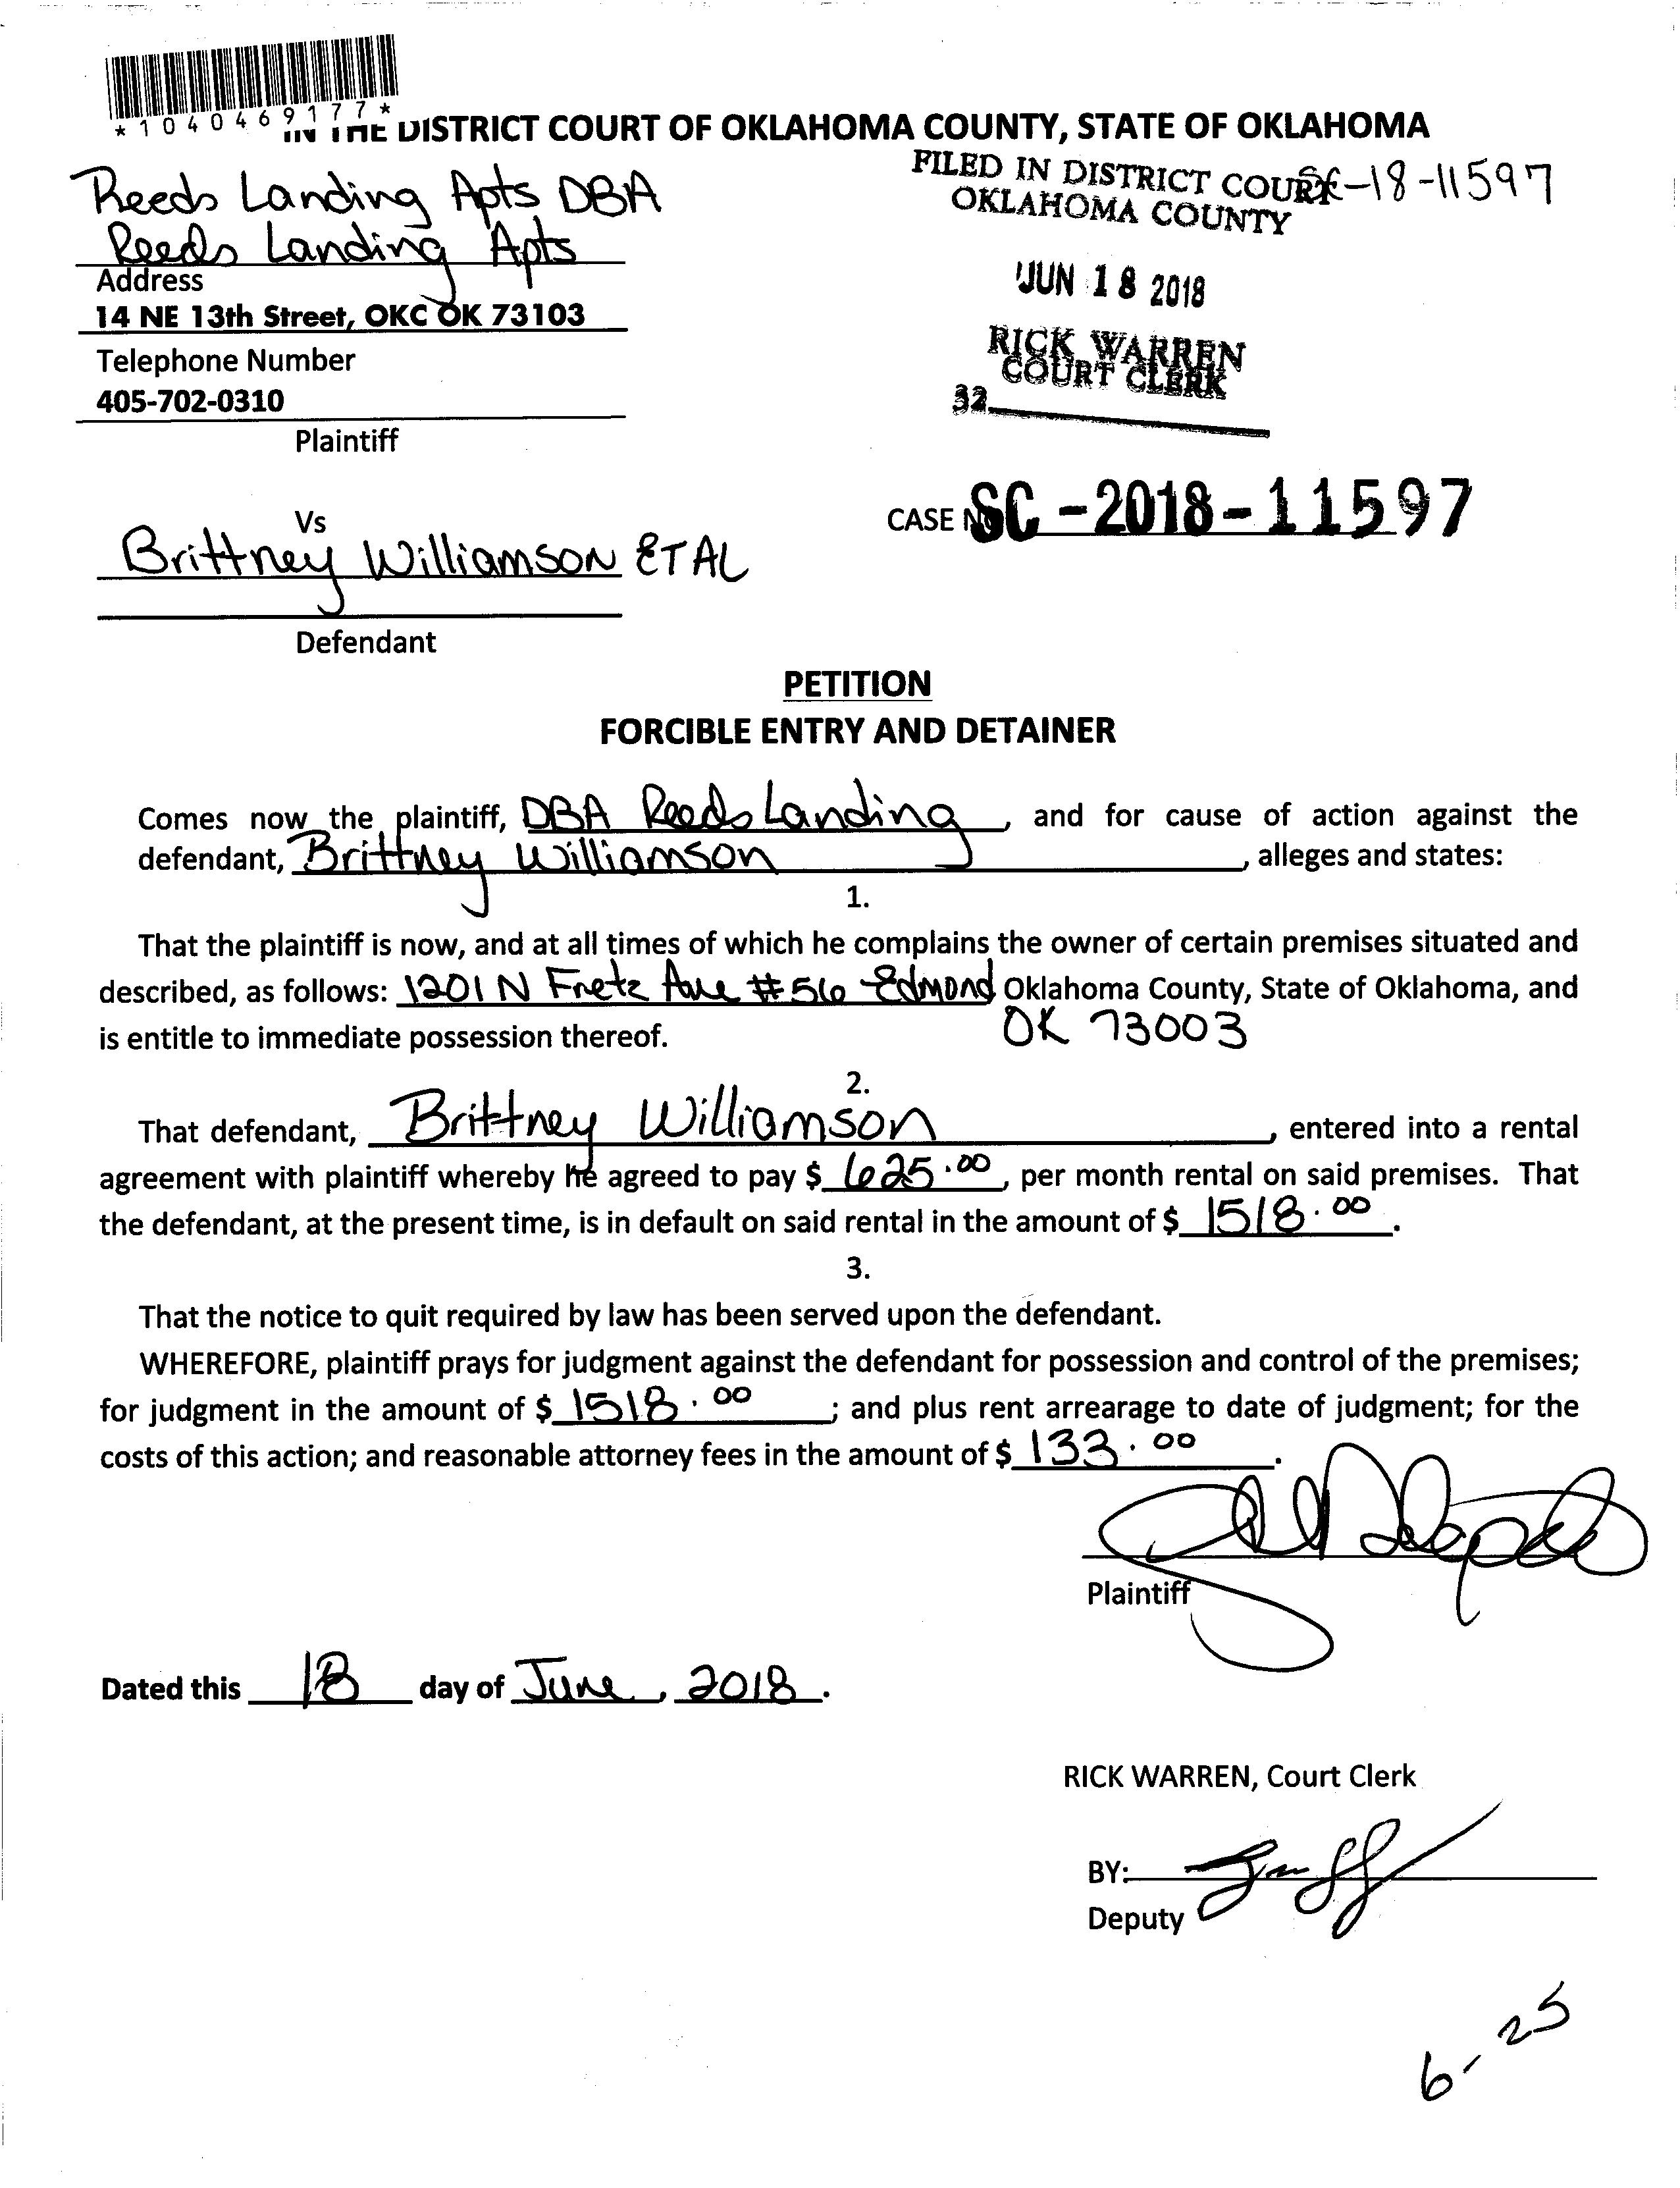 *1040469177*
IN THE DISTRICT COURT OF OKLAHOMA COUNTY, STATE OF OKLAHOMA
Reeds Landing Apts DBA
Reeds Landing Apts
Address
14 NE 13th Street, OKC OK 73103
Telephone Number
405-702-0310
Plaintiff
FILED IN DISTRICT COURT
OKLAHOMA COUNTY
SC-18-11597
JUN 18 2018
RICK WARREN
COURT CLERK
32
Vs
Brittney Williamson ETAL
Defendant
CASE NO. SC-2018-11597
PETITION
FORCIBLE ENTRY AND DETAINER
Comes now the plaintiff, DBA Reeds Landing, and for cause of action against the
defendant, Brittney Williamson, alleges and states:
1.
That the plaintiff is now, and at all times of which he complains the owner of certain premises situated and
described, as follows: 1201 N Fretz Ave #56 Edmond Oklahoma County, State of Oklahoma, and
is entitle to immediate possession thereof. OK 73003
2.
That defendant, Brittney Williamson, entered into a rental
agreement with plaintiff whereby he agreed to pay $ 625.00, per month rental on said premises. That
the defendant, at the present time, is in default on said rental in the amount of $ 1518.00.
3.
That the notice to quit required by law has been served upon the defendant.
WHEREFORE, plaintiff prays for judgment against the defendant for possession and control of the premises;
for judgment in the amount of $ 1518.00; and plus rent arrearage to date of judgment; for the
costs of this action; and reasonable attorney fees in the amount of $ 133.00.
Plaintiff
Dated this 18 day of June, 2018.
RICK WARREN, Court Clerk
BY:
Deputy
6-25